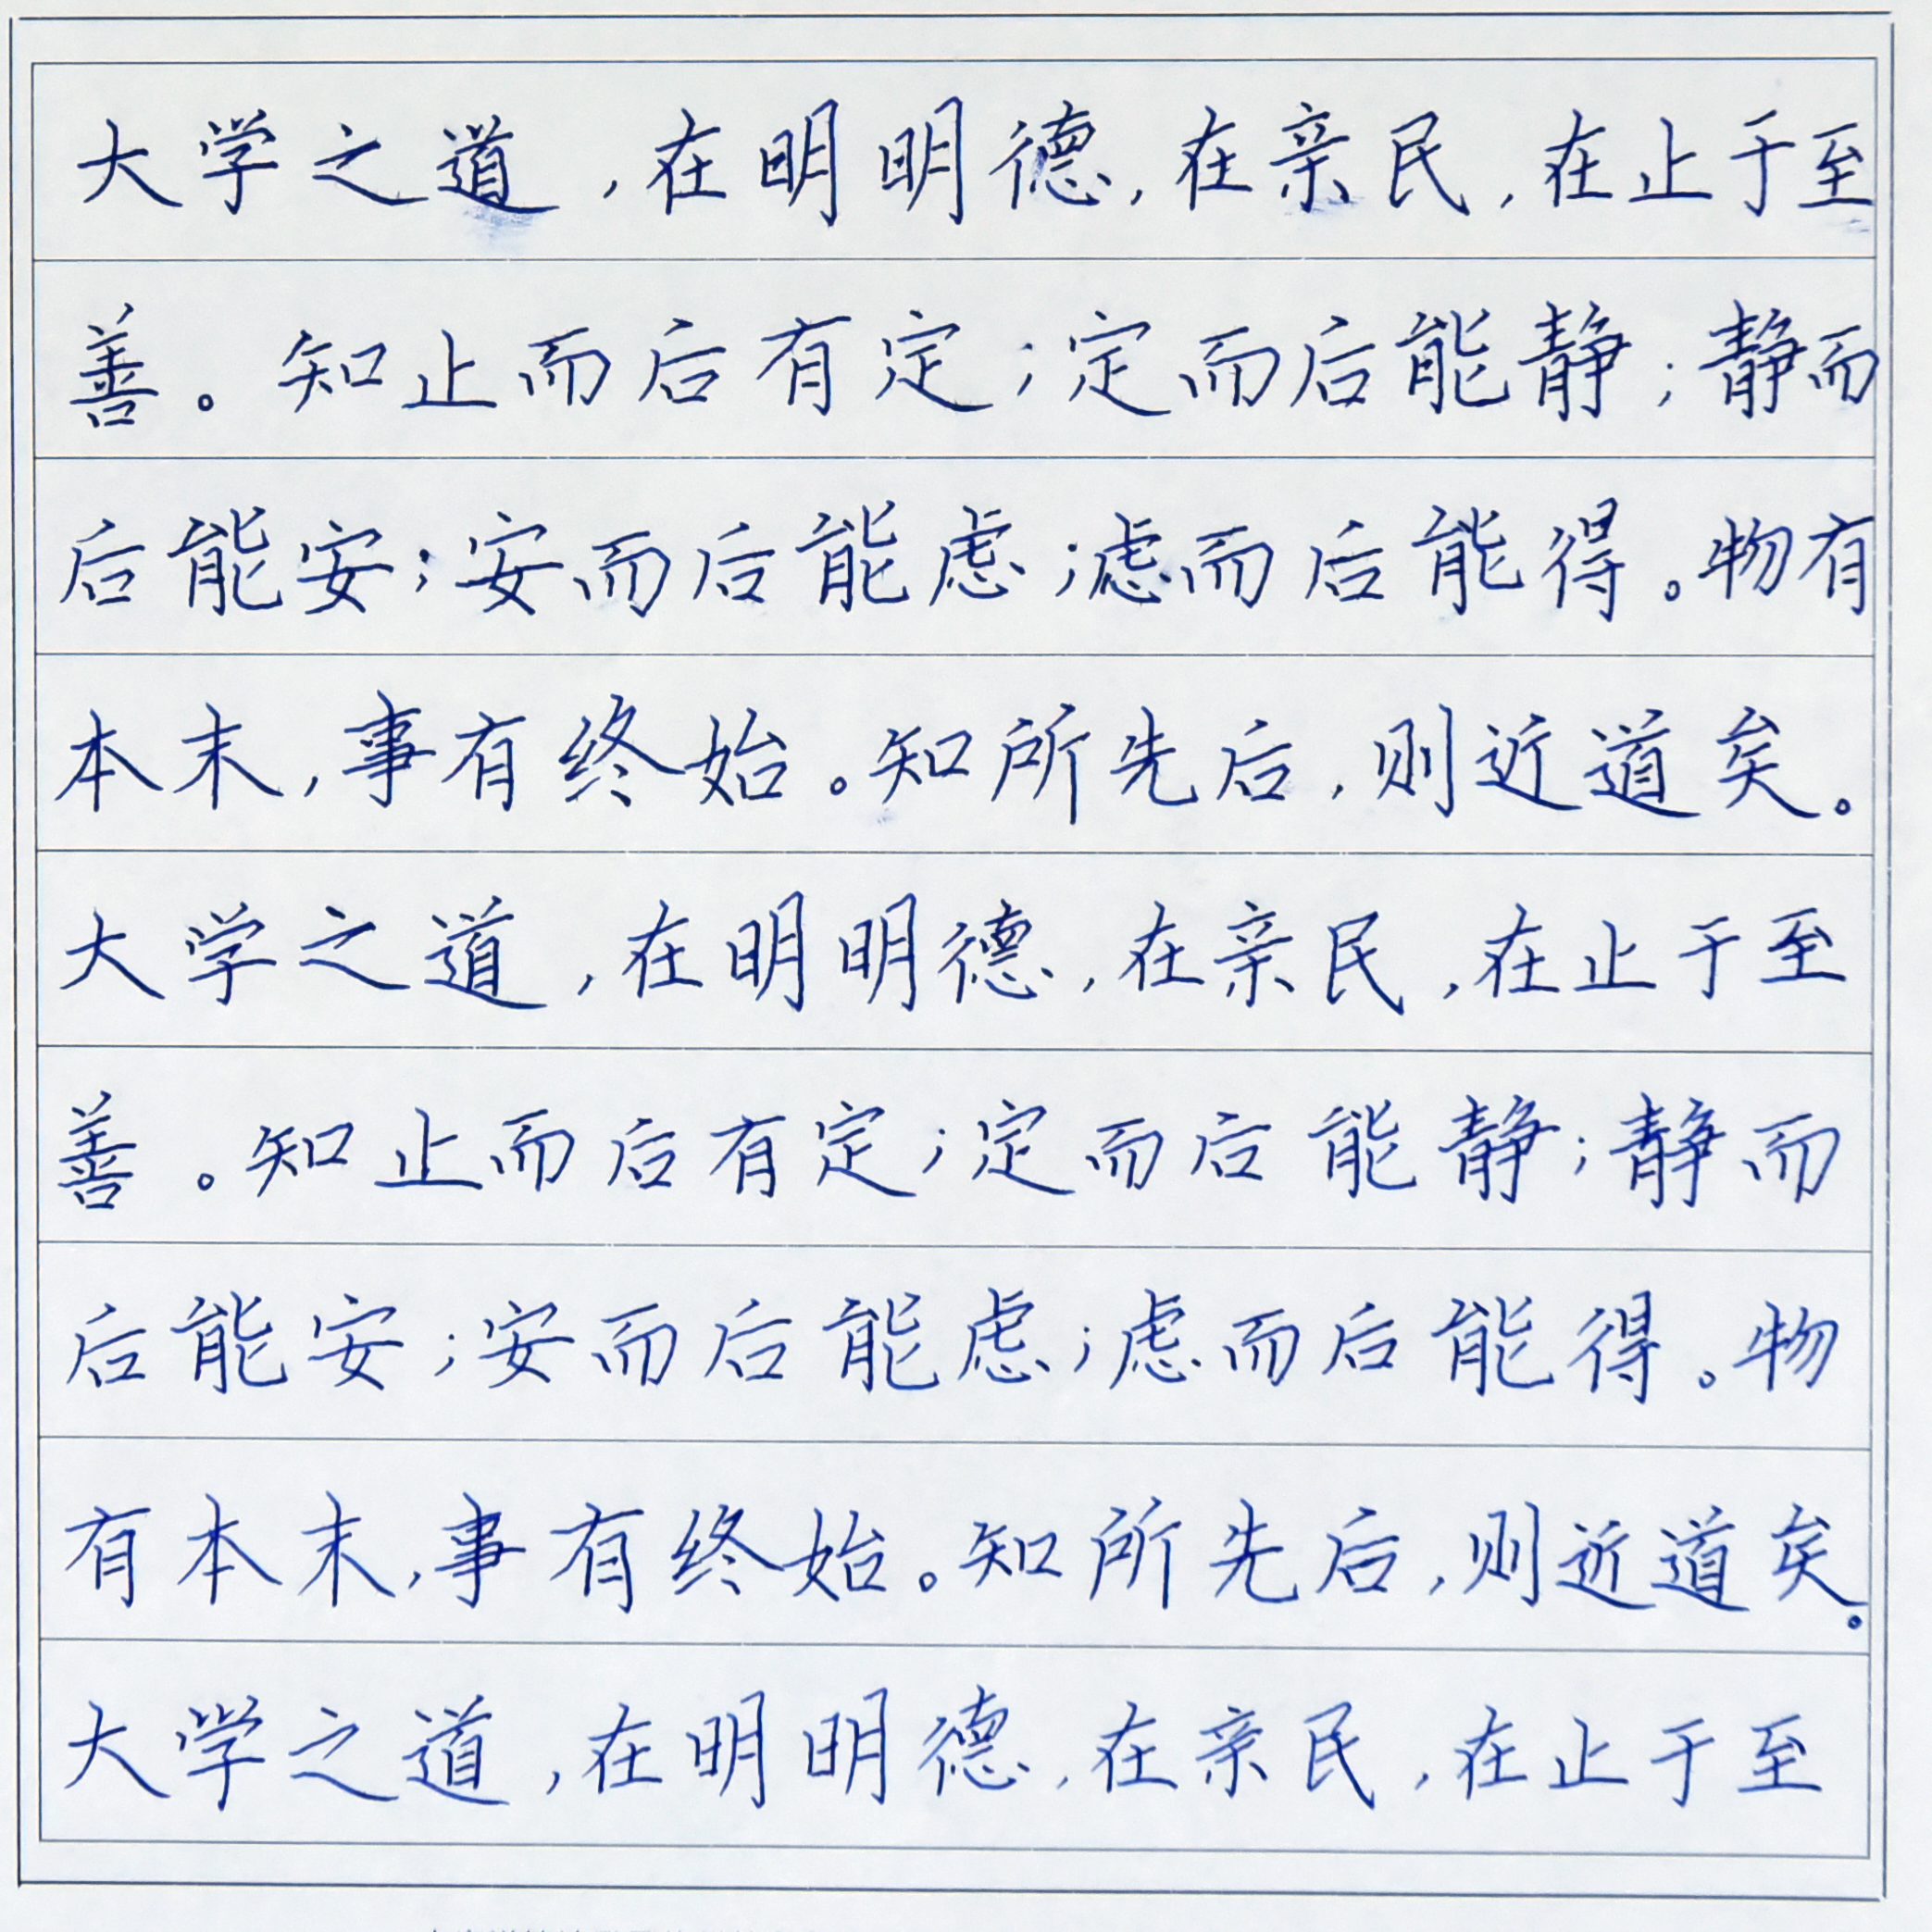 大学之道，在明明德，在亲民，在止于至
善。知止而后有定；定而后能静；静而
后能安；安而后能虑；虑而后能得。物有
本末，事有终始。知所先后，则近道矣。
大学之道，在明明德，在亲民，在止于至
善。知止而后有定；定而后能静；静而
后能安；安而后能虑；虑而后能得。物
有本末，事有终始。知所先后，则近道矣。
大学之道，在明明德，在亲民，在止于至